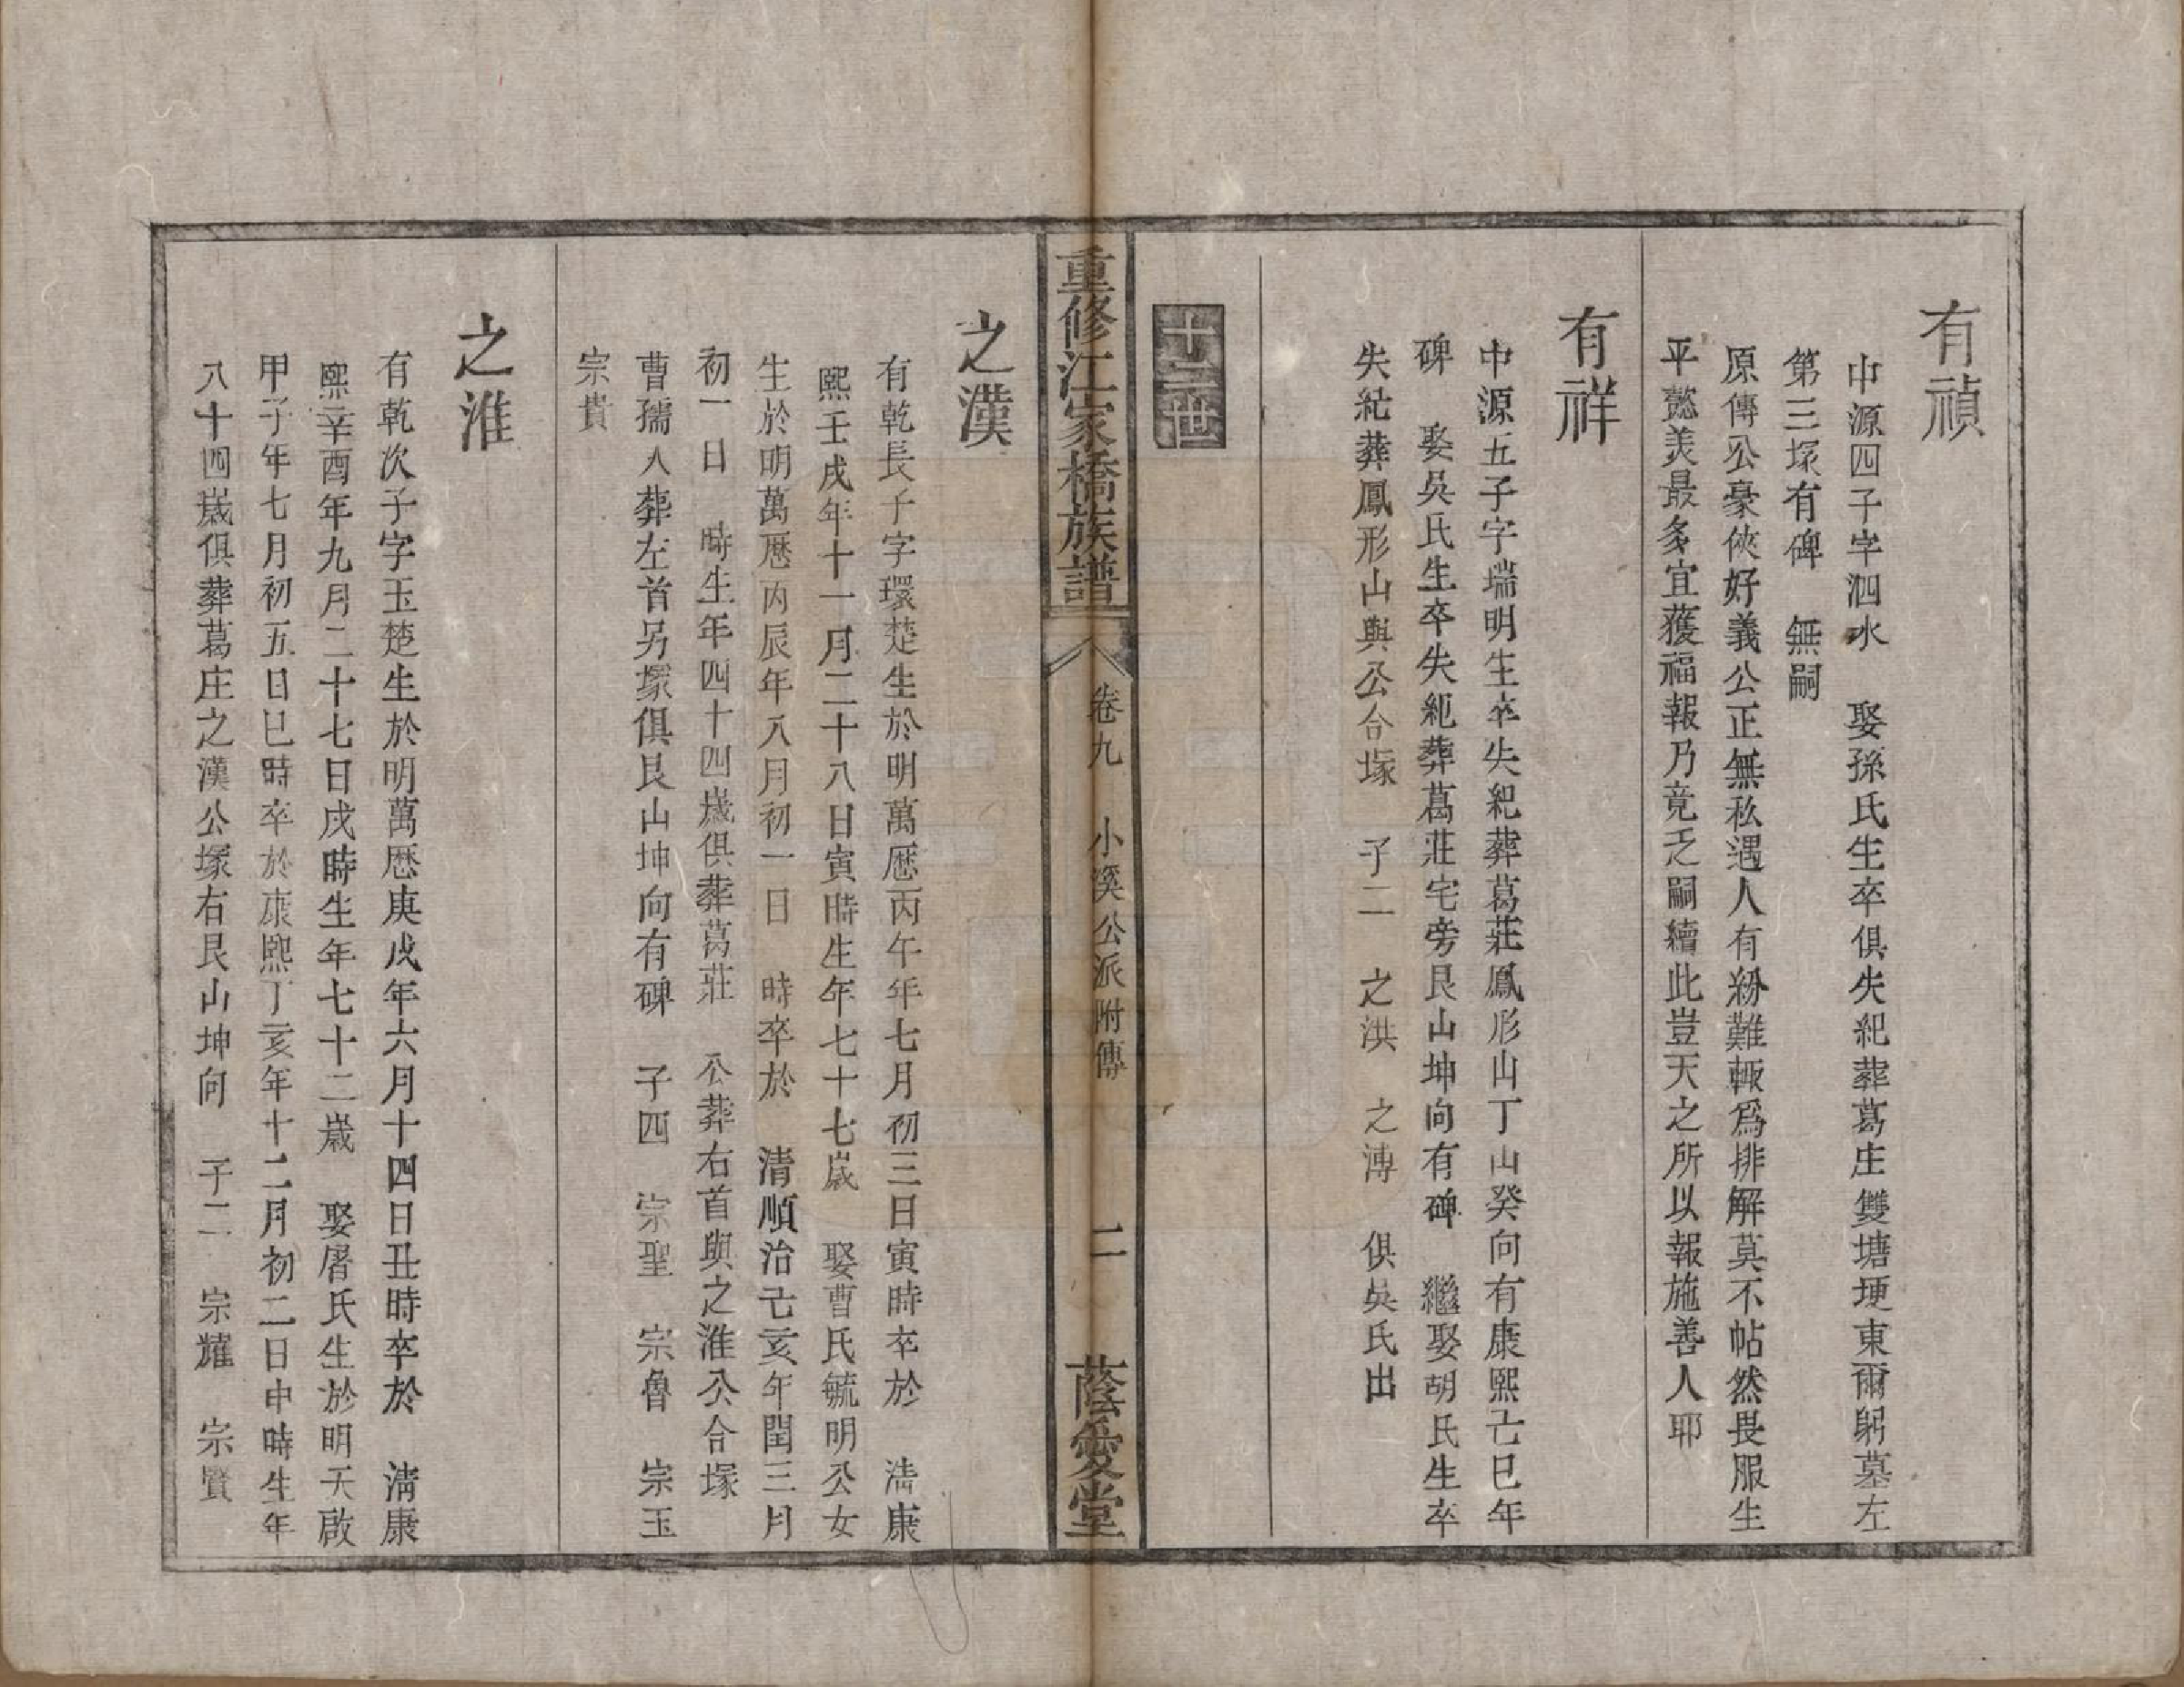 有禎
中源四子字泗水　娶孫氏生卒俱失紀葬葛庄雙塘埂東爾躬墓左
第三塚有碑　無嗣
原傳公豪俠好義公正無私遇人有紛難輙爲排解莫不帖然畏服生
平懿美最多宜獲福報乃竟乏嗣續此豈天之所以報施善人耶
有祥
中源五子字瑞明生卒失紀葬葛莊鳳形山丁山癸向有康熙己巳年
碑　娶吳氏生卒失紀葬葛莊宅旁艮山坤向有碑　繼娶胡氏生卒
失紀葬鳳形山與公合塚　子二　之洪　之溥　俱吳氏出
十三世
重修江家橋族譜
卷九　小溪公派附傳　二
蔭愛堂
之漢
有乾長子字環楚生於明萬歷丙午年七月初三日寅時卒於　清康
熙壬戌年十一月二十八日寅時生年七十七歲　娶曹氏毓明公女
生於明萬歷丙辰年八月初一日　時卒於　清順治己亥年閏三月
初一日　時生年四十四歲俱葬葛莊　公葬右首與之淮公合塚
曹孺人葬左首另塚俱艮山坤向有碑　子四　宗聖　宗魯　宗玉
宗貴
之淮
有乾次子字玉楚生於明萬歷庚戌年六月十四日丑時卒於　清康
熙辛酉年九月二十七日戌時生年七十二歲　娶屠氏生於明天啟
甲子年七月初五日巳時卒於康熙丁亥年十二月初二日申時生年
八十四歲俱葬葛庄之漢公塚右艮山坤向　子二　宗耀　宗賢